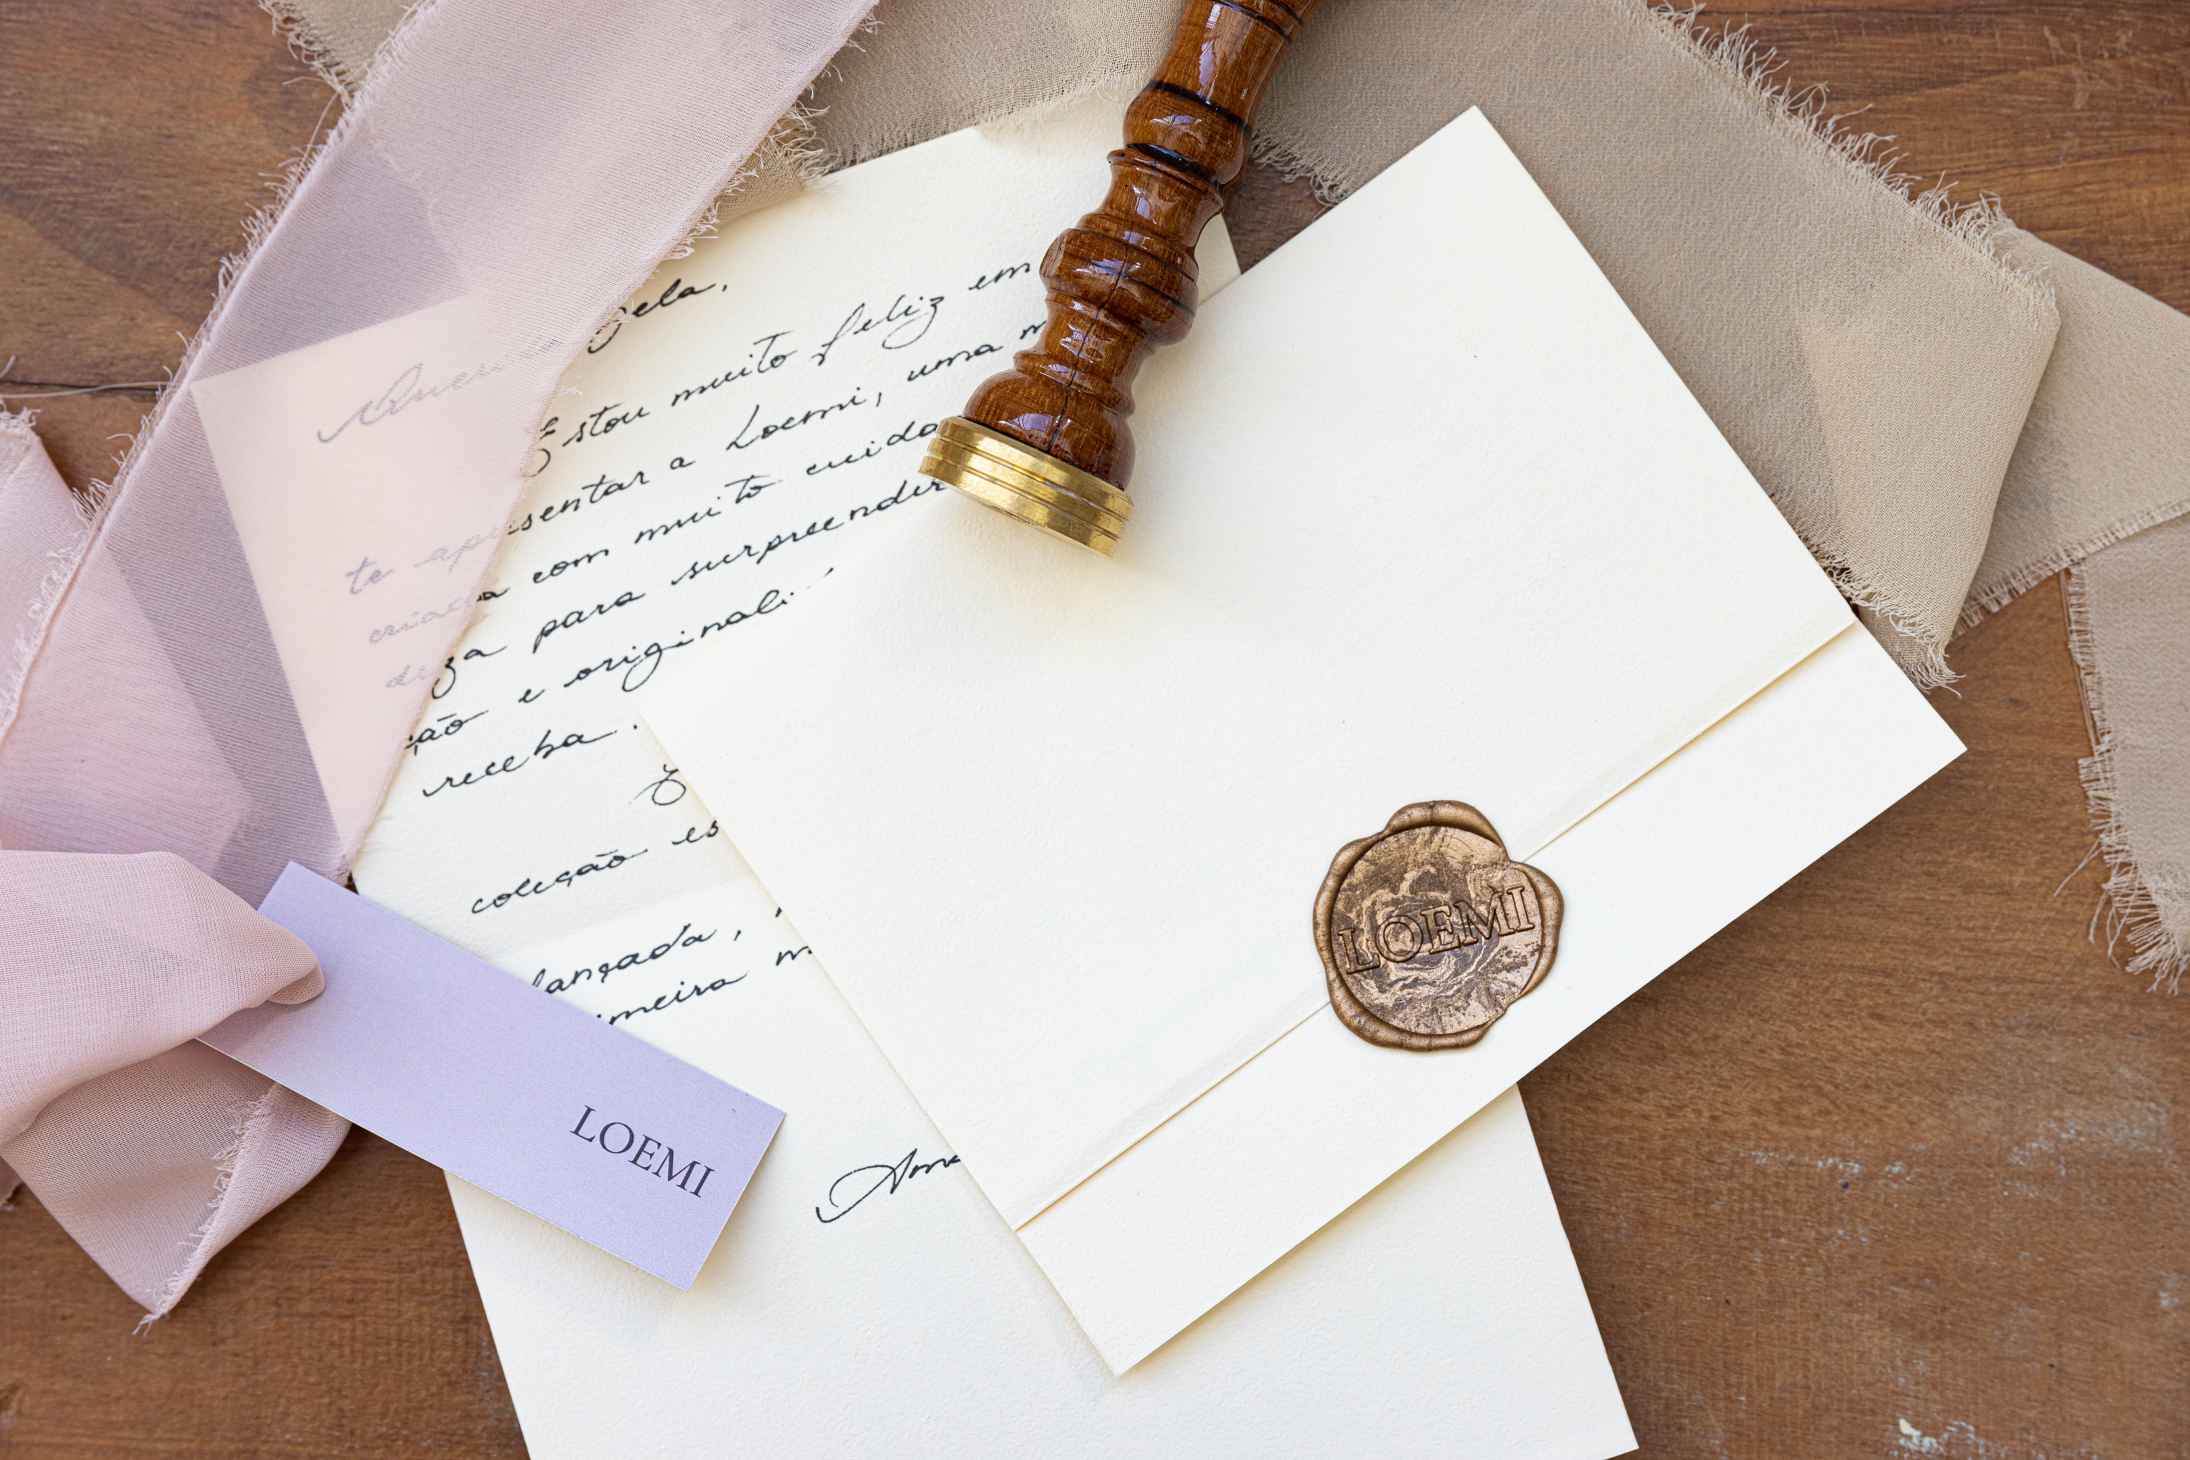 gela,
Estou muito feliz em
te apresentar a Loemi, uma
criada com muito cuida
para surpreender
ção e originali
receba.
coleção es
lançada,
imeira m
LOEMI
LOEMI